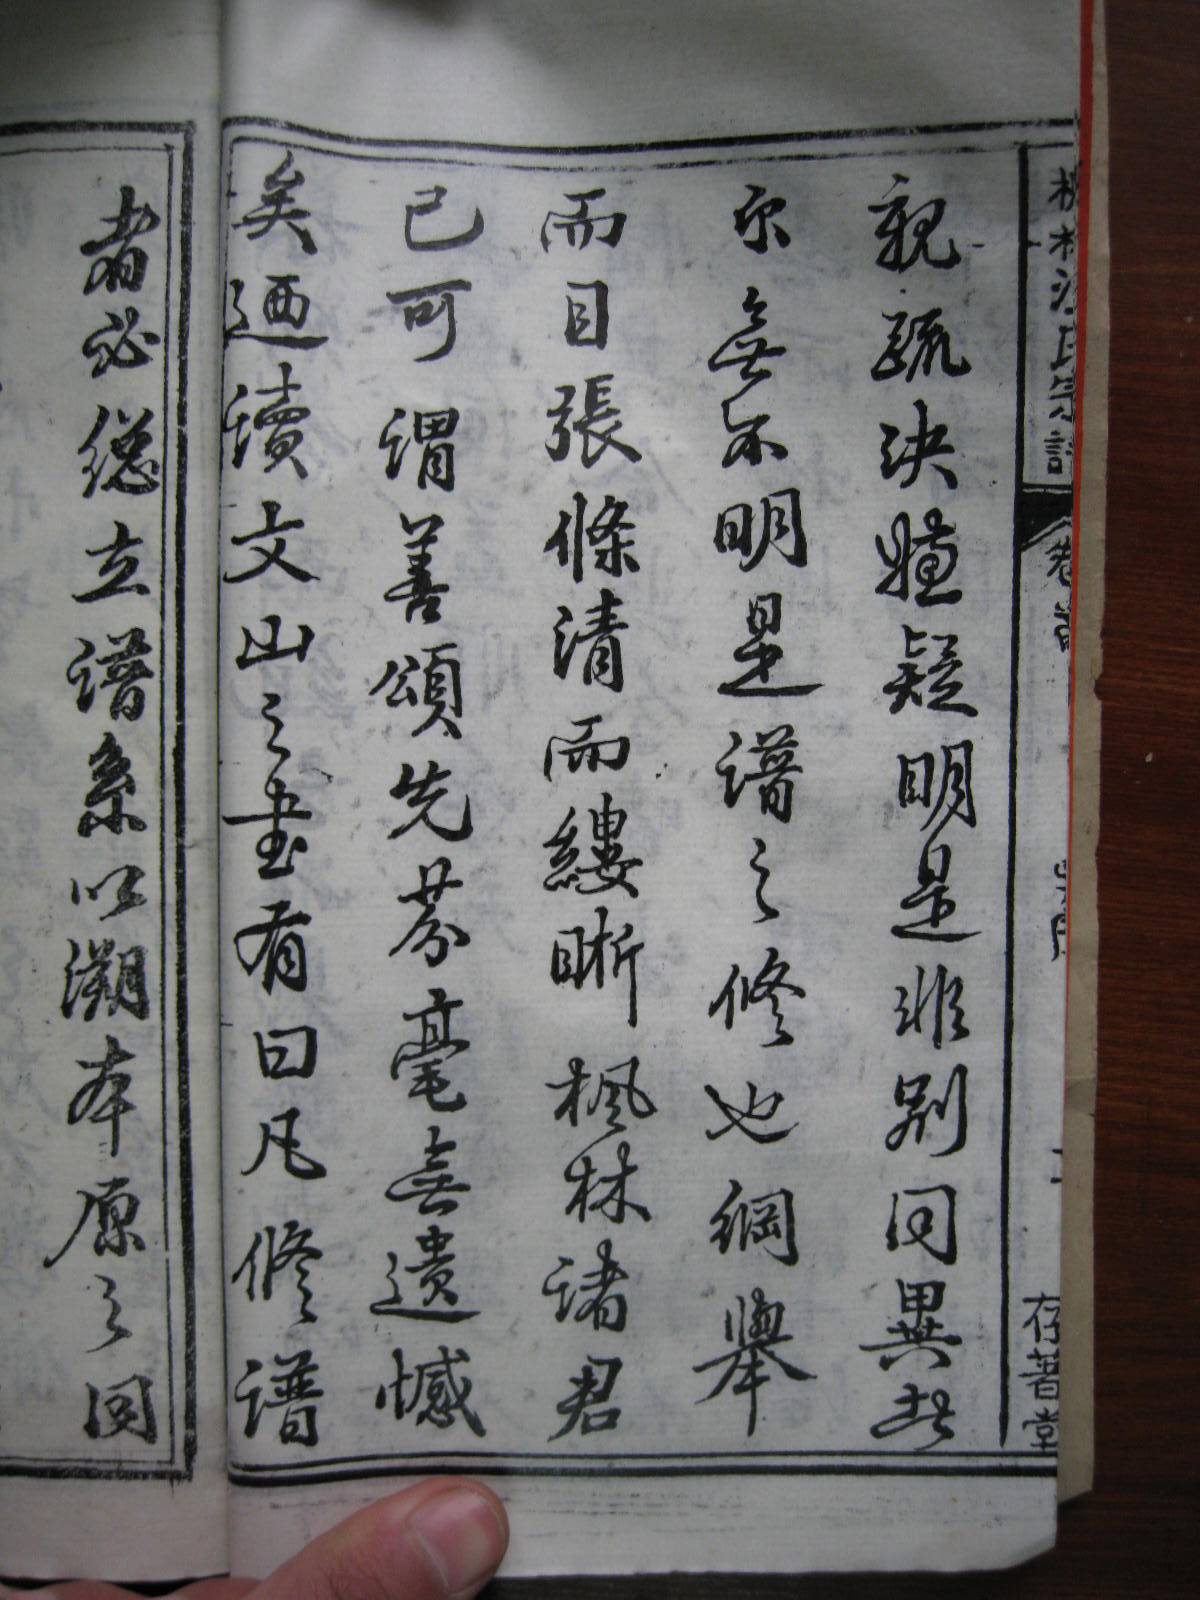 林 氏宗譜 卷首 存著堂
親疏決嫌疑明是非别同異
尔無不明是譜之修也綱舉
而目張條清而縷晰楓林諸君
已可謂善頌先芬毫無遺憾
矣迺讀文山之書有曰凡修譜
者必總立譜系以溯本原之同